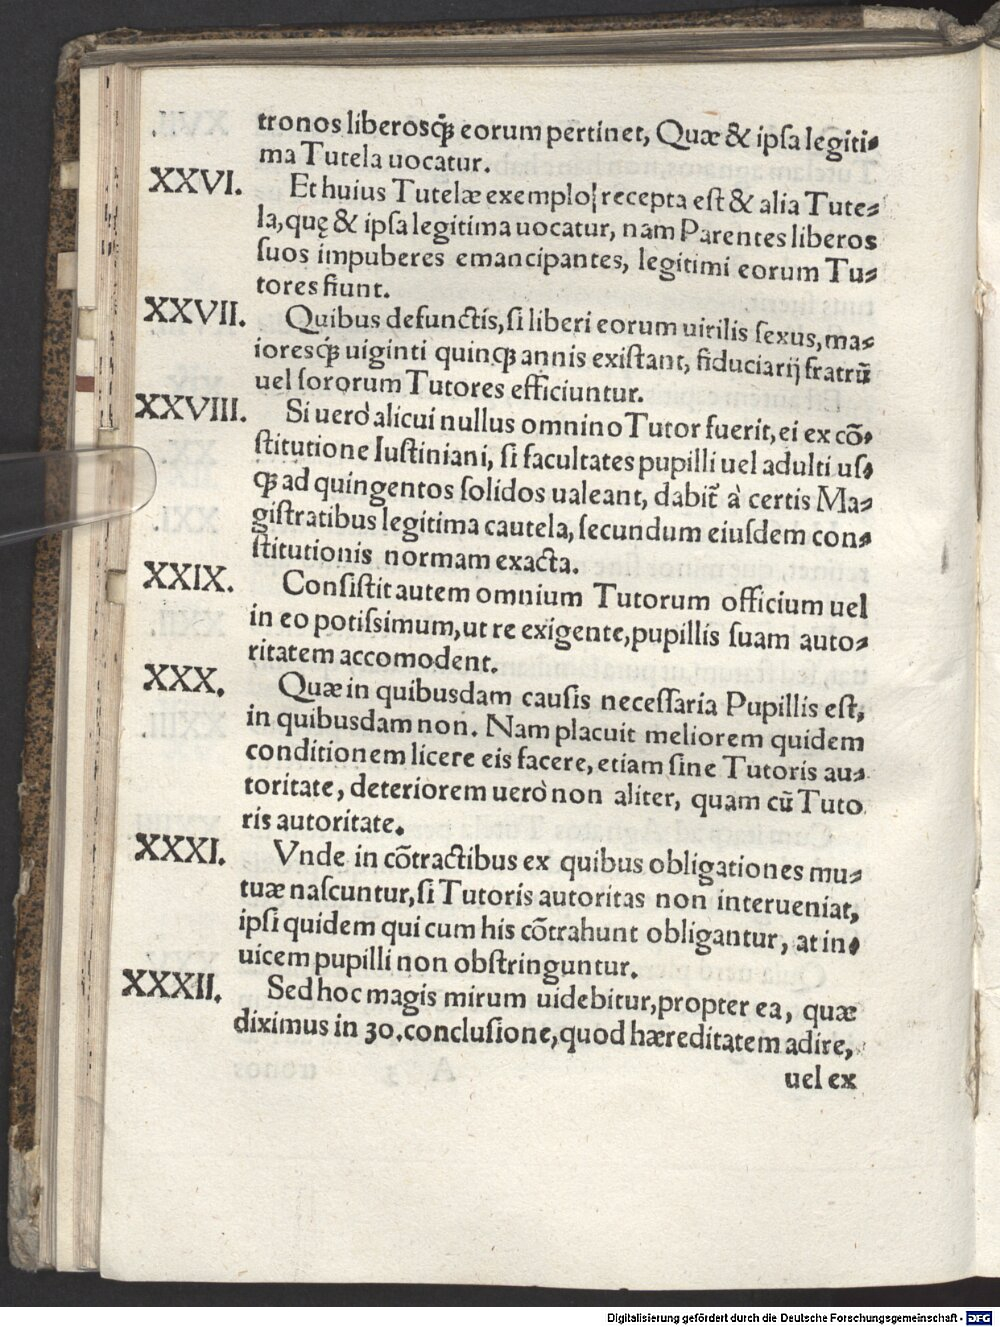 tronos liberosq́ꝫ eorum pertinet, Quæ & ipſa legiti⸗
ma Tutela uocatur.
XXVI. Et huius Tutelæ exemplo| recepta eſt & alia Tute⸗
la, quę & ipſa legitima uocatur, nam Parentes liberos
ſuos impuberes emancipantes, legitimi eorum Tu⸗
tores fiunt.
XXVII. Quibus defunctis, ſi liberi eorum uirilis ſexus, ma⸗
ioresq́ꝫ uiginti quinqꝫ annis exiſtant, fiduciarij fratrũ
uel ſororum Tutores efficiuntur.
XXVIII. Si uerò alicui nullus omnino Tutor fuerit, ei ex cõ⸗
ſtitutione Iuſtiniani, ſi facultates pupilli uel adulti uſ⸗
qꝫ ad quingentos ſolidos ualeant, dabit̃ à certis Ma⸗
giſtratibus legitima cautela, ſecundum eiuſdem con⸗
ſtitutionis normam exacta.
XXIX. Conſiſtit autem omnium Tutorum officium uel
in eo potiſsimum, ut re exigente, pupillis ſuam auto⸗
ritatem accomodent.
XXX. Quæ in quibusdam cauſis neceſſaria Pupillis eſt,
in quibusdam non. Nam placuit meliorem quidem
conditionem licere eis facere, etiam ſine Tutoris au⸗
toritate, deteriorem uerò non aliter, quam cũ Tuto
ris autoritate.
XXXI. Vnde in cõtractibus ex quibus obligationes mu⸗
tuæ naſcuntur, ſi Tutoris autoritas non interueniat,
ipſi quidem qui cum his cõtrahunt obligantur, at in⸗
uicem pupilli non obſtringuntur.
XXXII. Sed hoc magis mirum uidebitur, propter ea, quæ
diximus in 30. concluſione, quod hæreditatem adire,
uel ex
Digitalisierung gefördert durch die Deutsche Forschungsgemeinschaft - DFG